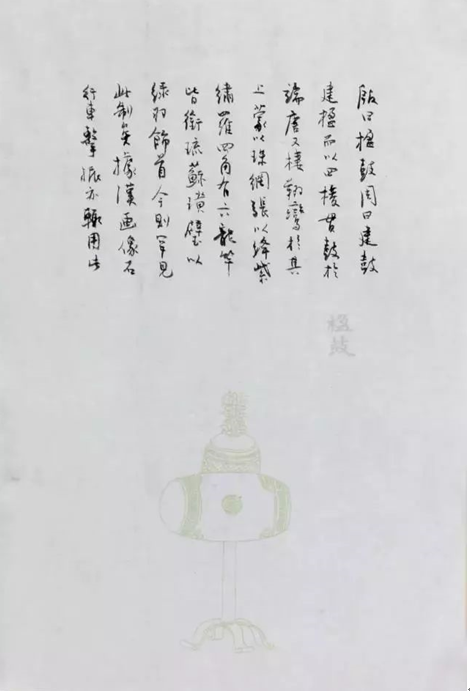 殷曰楹鼓周曰建鼓
建楹而以四棱貫鼓於
端唐又棲翔鷺於其
上蒙以珠網張以絳紫
繡羅四角有六龍竿
皆銜流蘇璜璧以
綠羽飾首今則罕見
此制矣據漢画像石
行車擊振亦輙用此
楹鼓